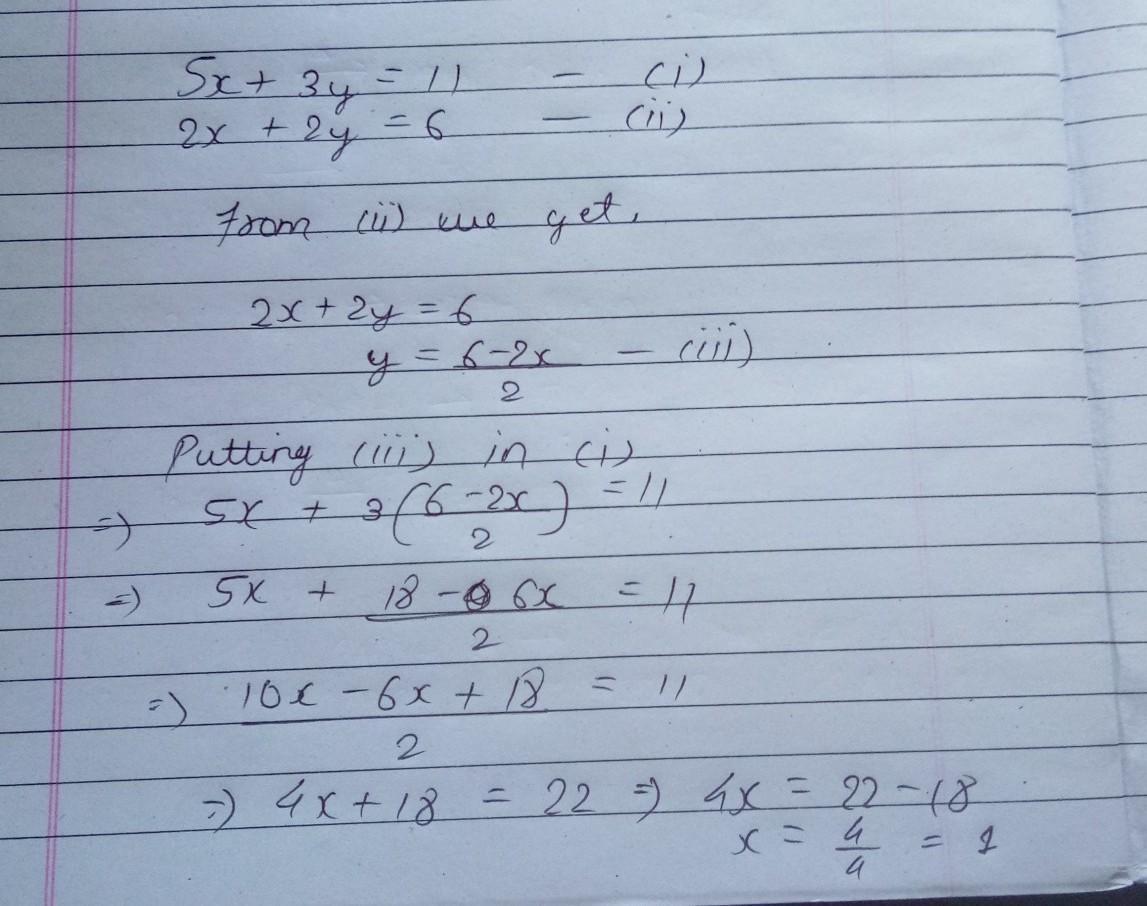 5x + 3y = 11 — (i)
2x + 2y = 6 — (ii)
From (ii) we get,
2x + 2y = 6
y = 6-2x — (iii)
2
Putting (iii) in (i)
=) 5x + 3(6-2x) = 11
2
=) 5x + 18 - 6x = 11
2
=) 10x - 6x + 18 = 11
2
=) 4x + 18 = 22 =) 4x = 22 - 18
x = 4 = 1
4